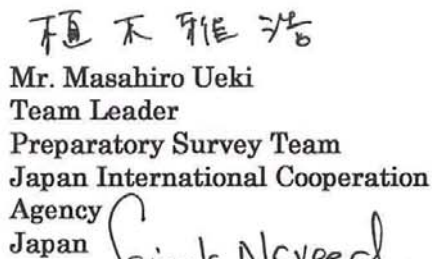 植木雅浩
Mr. Masahiro Ueki
Team Leader
Preparatory Survey Team
Japan International Cooperation
Agency
Japan